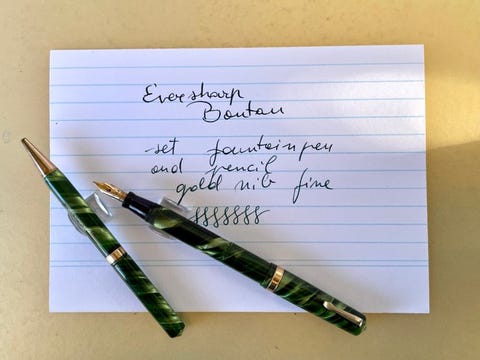 Eversharp
Bontau
set fountainpen
and pencil
gold nib fine
ssssssss